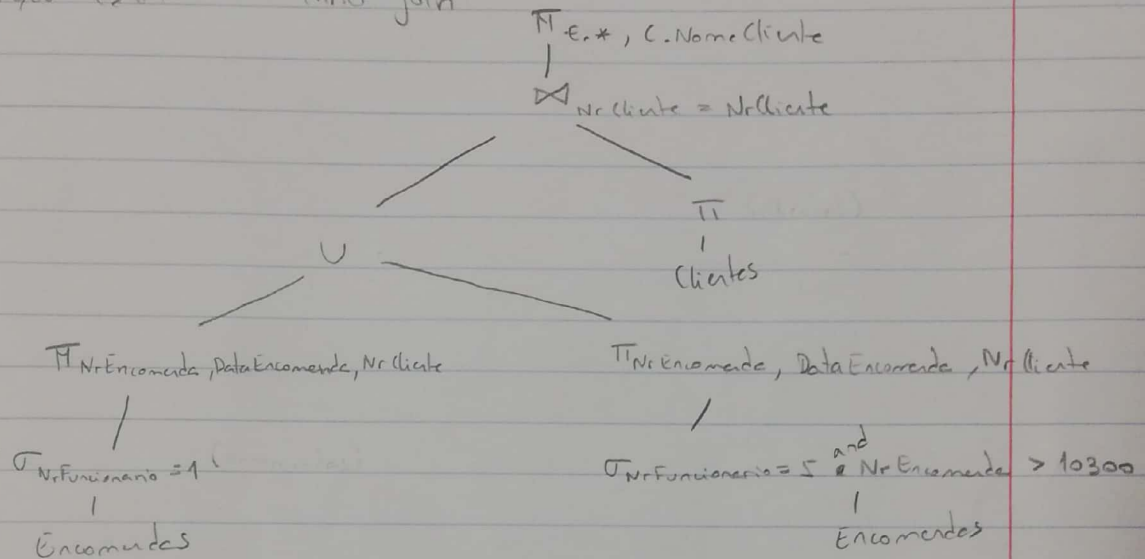 join
π E.*, C.NomeCliente
⋈ NrCliente = NrCliente
π
U
Clientes
π NrEncomenda, DataEncomenda, NrCliente
π NrEncomenda, DataEncomenda, NrCliente
and
σ NrFuncionario = 1
σ NrFuncionario = 5 NrEncomenda > 10300
Encomendas
Encomendas